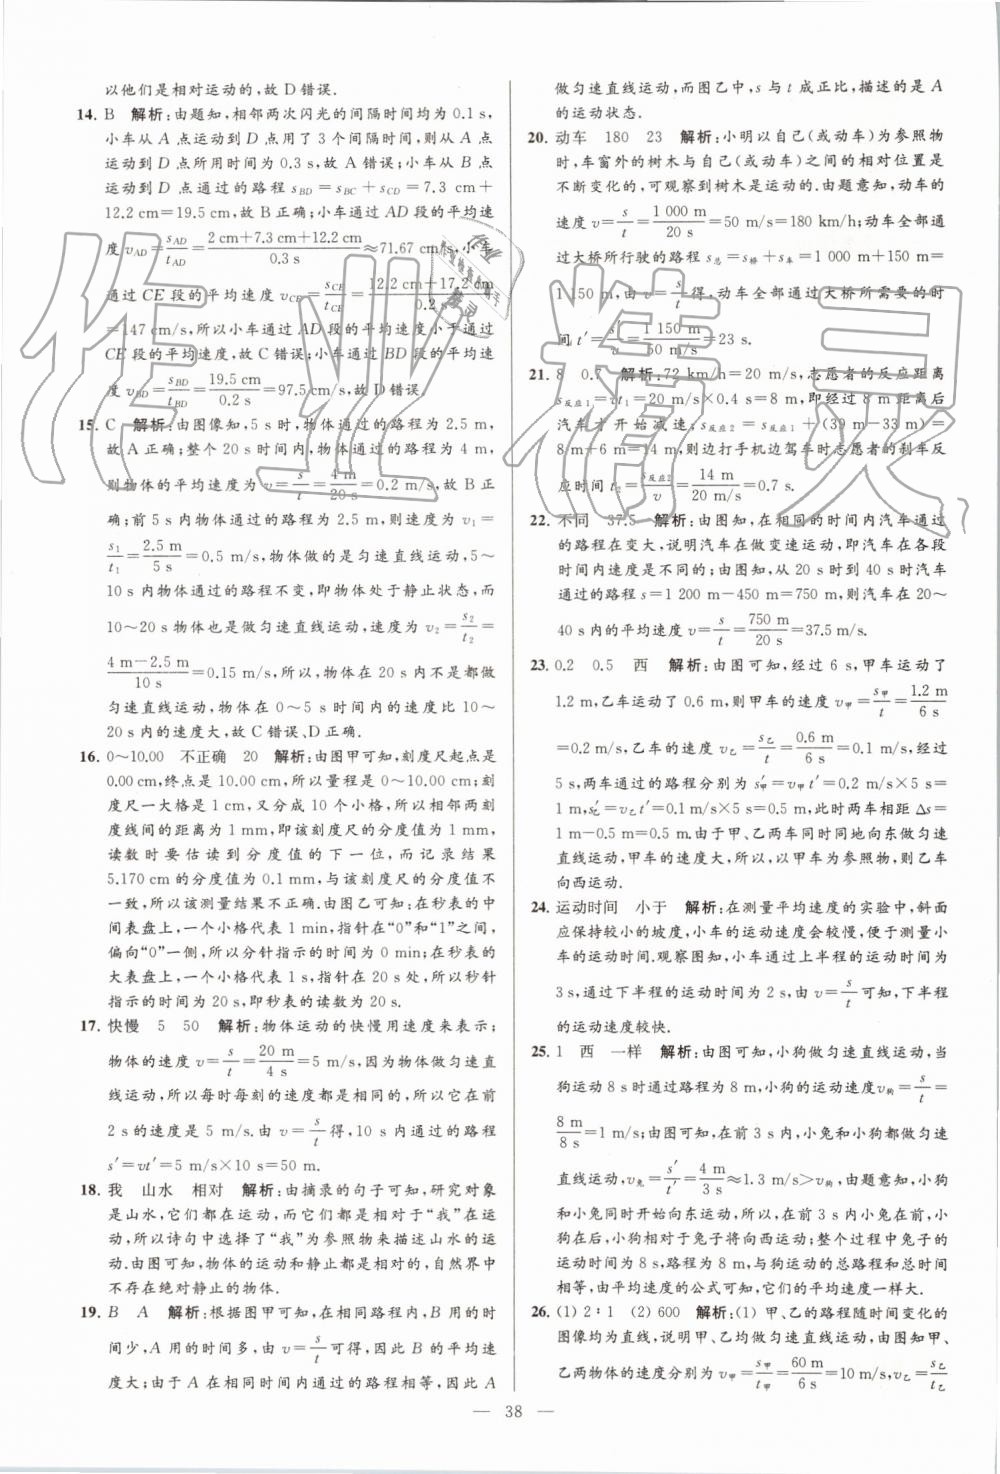 以他们是相对运动的,故 D 错误.
14. B 解析:由题知,相邻两次闪光的间隔时间均为 0.1 s,
小车从 A 点运动到 D 点用了 3 个间隔时间,则从 A 点
运动到 D 点所用时间为 0.3 s,故 A 错误;小车从 B 点
运动到 D 点通过的路程 s_BD = s_BC + s_CD = 7.3 cm +
12.2 cm=19.5 cm,故 B 正确;小车通过 AD 段的平均速
度 v_AD = s_AD/t_AD = (2 cm+7.3 cm+12.2 cm)/0.3 s ≈71.67 cm/s,小车
通过 CE 段的平均速度 v_CE = s_CE/t_CE = (12.2 cm+17.2 cm)/0.2 s
=147 cm/s,所以小车通过 AD 段的平均速度小于通过
CE 段的平均速度,故 C 错误;小车通过 BD 段的平均速
度 v_BD = s_BD/t_BD = 19.5 cm/0.2 s =97.5 cm/s,故 D 错误.
15. C 解析:由图像知,5 s 时,物体通过的路程为 2.5 m,
故 A 正确;整个 20 s 时间内,物体通过的路程为 4 m,
则物体的平均速度为 v = s/t = 4 m/20 s =0.2 m/s,故 B 正
确;前 5 s 内物体通过的路程为 2.5 m,则速度为 v₁ =
s₁/t₁ = 2.5 m/5 s =0.5 m/s,物体做的是匀速直线运动,5～
10 s 内物体通过的路程不变,即物体处于静止状态,而
10～20 s 物体也是做匀速直线运动,速度为 v₂ = s₂/t₂ =
(4 m-2.5 m)/10 s =0.15 m/s,所以物体在 20 s 内不是都做
匀速直线运动,物体在 0～5 s 时间内的速度比 10～
20 s 内的速度大,故 C 错误、D 正确.
16. 0～10.00 不正确 20 解析:由图甲可知,刻度尺起点是
0.00 cm,终点是 10.00 cm,所以量程是 0～10.00 cm;刻
度尺一大格是 1 cm,又分成 10 个小格,所以相邻两刻
度线间的距离为 1 mm,即该刻度尺的分度值为 1 mm,
读数时要估读到分度值的下一位,而记录结果
5.170 cm 的分度值为 0.1 mm,与该刻度尺的分度值不
一致,所以该测量结果不正确.由图乙可知:在秒表的中
间表盘上,一个小格代表 1 min,指针在“0”和“1”之间,
偏向“0”一侧,所以分针指示的时间为 0 min;在秒表的
大表盘上,一个小格代表 1 s,指针在 20 s 处,所以秒针
指示的时间为 20 s,即秒表的读数为 20 s.
17. 快慢 5 50 解析:物体运动的快慢用速度来表示;
物体的速度 v = s/t = 20 m/4 s =5 m/s,因为物体做匀速直
线运动,所以每时每刻的速度都是相同的,所以它在前
2 s 的速度是 5 m/s.由 v = s/t 得,10 s 内通过的路程
s′=vt′=5 m/s×10 s=50 m.
18. 我 山水 相对 解析:由摘录的句子可知,研究对象
是山水,它们都在运动,而它们都是相对于“我”在运
动,所以诗句中选择了“我”为参照物来描述山水的运
动.由图可知,物体的运动和静止都是相对的,自然界中
不存在绝对静止的物体.
19. B A 解析:根据图甲可知,在相同路程内,B 用的时
间少,A 用的时间多,由 v = s/t 可得,因此 B 的平均速
度大;由于 A 在相同时间内通过的路程相等,因此 A
做匀速直线运动,而图乙中,s 与 t 成正比,描述的是 A
的运动状态.
20. 动车 180 23 解析:小明以自己(或动车)为参照物
时,车窗外的树木与自己(或动车)之间的相对位置是
不断变化的,可观察到树木是运动的.由题意知,动车的
速度 v = s/t = 1 000 m/20 s =50 m/s=180 km/h;动车全部通
过大桥所行驶的路程 s总 = s桥 + s车 = 1 000 m+150 m=
1 150 m,由 v = s/t 得,动车全部通过大桥所需要的时
间 t′ = s′/v = 1 150 m/50 m/s =23 s.
21. 8 0.7 解析:72 km/h=20 m/s,志愿者的反应距离
s反应1 = vt₁ =20 m/s×0.4 s=8 m,即经过 8 m 距离后
汽车才开始减速;s反应2 = s反应1 +(39 m-33 m)=
8 m+6 m=14 m,则边打手机边驾车时志愿者的刹车反
应时间 t₂ = s反应2/v = 14 m/20 m/s =0.7 s.
22. 不同 37.5 解析:由图知,在相同的时间内汽车通过
的路程在变大,说明汽车在做变速运动,即汽车在各段
时间内速度是不同的;由图知,从 20 s 时到 40 s 时汽车
通过的路程 s=1 200 m-450 m=750 m,则汽车在 20～
40 s 内的平均速度 v = s/t = 750 m/20 s =37.5 m/s.
23. 0.2 0.5 西 解析:由图可知,经过 6 s,甲车运动了
1.2 m,乙车运动了 0.6 m,则甲车的速度 v甲 = s甲/t = 1.2 m/6 s
=0.2 m/s,乙车的速度 v乙 = s乙/t = 0.6 m/6 s =0.1 m/s,经过
5 s,两车通过的路程分别为 s′甲 = v甲 t′=0.2 m/s×5 s=
1 m,s′乙=v乙t′=0.1 m/s×5 s=0.5 m,此时两车相距 Δs=
1 m-0.5 m=0.5 m.由于甲、乙两车同时同地向东做匀速
直线运动,甲车的速度大,所以以甲车为参照物,则乙车
向西运动.
24. 运动时间 小于 解析:在测量平均速度的实验中,斜面
应保持较小的坡度,小车的运动速度会较慢,便于测量小
车的运动时间.观察图知,小车通过上半程的运动时间为
3 s,通过下半程的运动时间为 2 s,由 v = s/t 可知,下半程
的运动速度较快.
25. 1 西 一样 解析:由图可知,小狗做匀速直线运动,当
狗运动 8 s 时通过路程为 8 m,小狗的运动速度 v狗 = s/t =
8 m/8 s =1 m/s;由图可知,在前 3 s 内,小兔和小狗都做匀速
直线运动,v兔 = s′/t′ = 4 m/3 s ≈1.3 m/s>v狗,由题意知,小狗
和小兔同时开始向东运动,所以,在前 3 s 内小兔在前,小
狗在后,小狗相对于兔子将向西运动;整个过程小兔的
运动时间为 8 s,路程为 8 m,与小狗的运动总路程和总时间
相等,由平均速度的公式可知,它们的平均速度一样大.
26. (1) 2∶1 (2) 600 解析:(1) 甲、乙的路程随时间变化的
图像均为直线,说明甲、乙均做匀速直线运动,由图知甲、
乙两物体的速度分别为 v甲 = s甲/t甲 = 60 m/6 s =10 m/s,v乙 = s乙/t乙
— 38 —
作业精灵